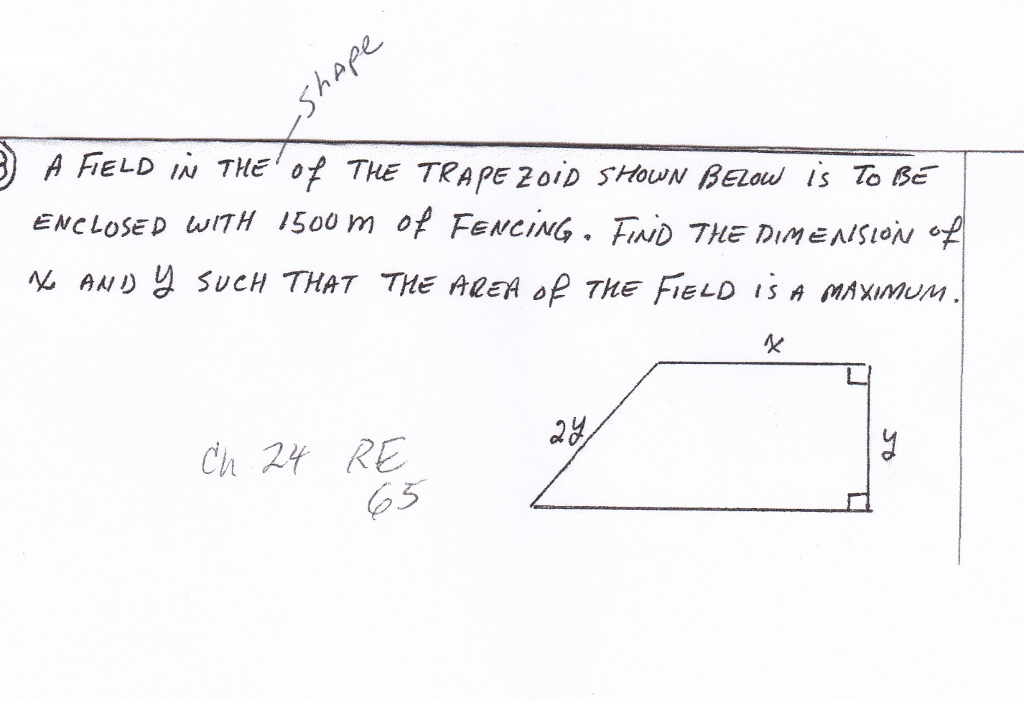 shape
3) A FIELD IN THE of THE TRAPEZOID SHOWN BELOW IS TO BE
ENCLOSED WITH 1500 m of FENCING. FIND THE DIMENSION of
x AND y SUCH THAT THE AREA of THE FIELD IS A MAXIMUM.
x
2y
y
Ch 24 RE
65